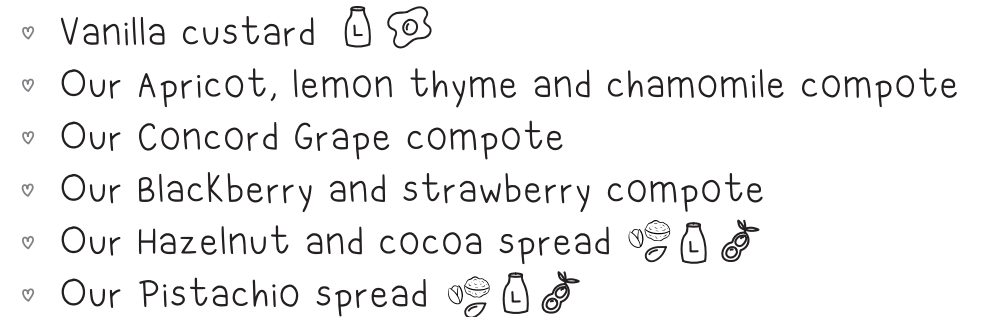 Vanilla custard L
Our Apricot, lemon thyme and chamomile compote
Our Concord Grape compote
Our Blackberry and strawberry compote
Our Hazelnut and cocoa spread L
Our Pistachio spread L